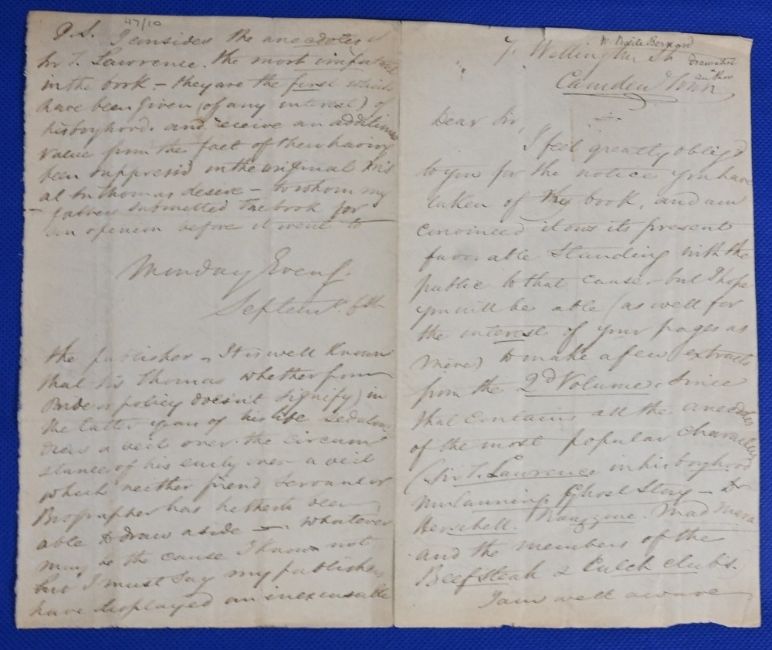 47/10
P.S. I consider the anecdotes of
Sir T. Lawrence the most important
in the book – they are the first which
have been given (of any interest) of
his boyhood, and receive an additional
value from the fact of their having
been suppress'd in the original MS
at Sir Thomas desire – to whom my
father submitted the book for
an opinion before it went to
Monday Eveng.
Septemr. 6th
the publisher – It is well known
that Sir Thomas whether from
Pride or policy doesn't signify) in
the latter years of his life
drew a veil over the circum
stances of his early over – a veil
which neither friend servant or
Biographer has hitherto been
able to draw aside – whatever
may be the cause I know not
but I must say my publishers
have displayed an inexcusable
W. Bayle Bernard
dramatist
author
7 Wellington St
Camden Town
Dear Sir,
I feel greatly oblig'd
to you for the notices you have
taken of my book, and am
convinced it owes its present
favorable standing with the
public to that cause – but I hope
you will be able (as well for
the interest of your pages as
mine) to make a few extracts
from the 2d Volume, since
that contains all the anecdotes
of the most popular characters
(Sir T. Lawrence in his boyhood
Mr Canning Ghost Story – Dr
Herschell. Mad Mara
and the members of the
Beefsteak & Clubs.
I am well aware